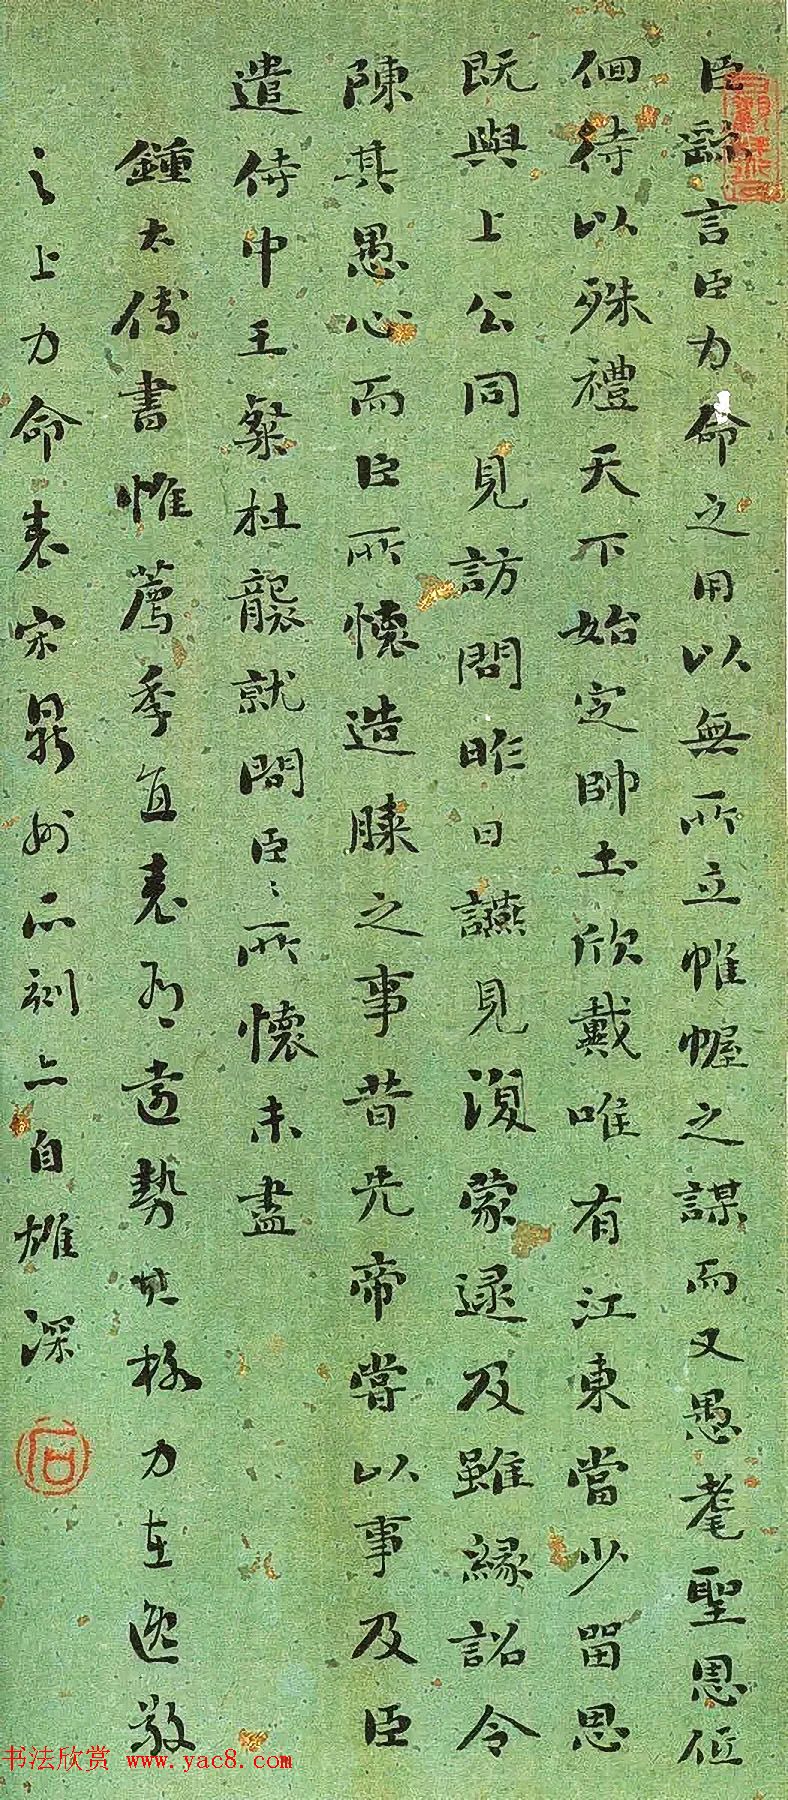 臣繇言臣力命之用以無所立帷幄之謀而又愚耄聖恩低
佪待以殊禮天下始定帥土欣戴唯有江東當少留思
既與上公同見訪問昨日讌見復蒙逮及雖緣詔令
陳其愚心而臣所懷造膝之事昔先帝嘗以事及臣
遣侍中王粲杜襲就問臣〻所懷未盡
鍾太傅書惟薦季直表勢力在逸
之上力命表宋鼎州所刻亦自雄深
石
书法欣赏 www.yac8.com